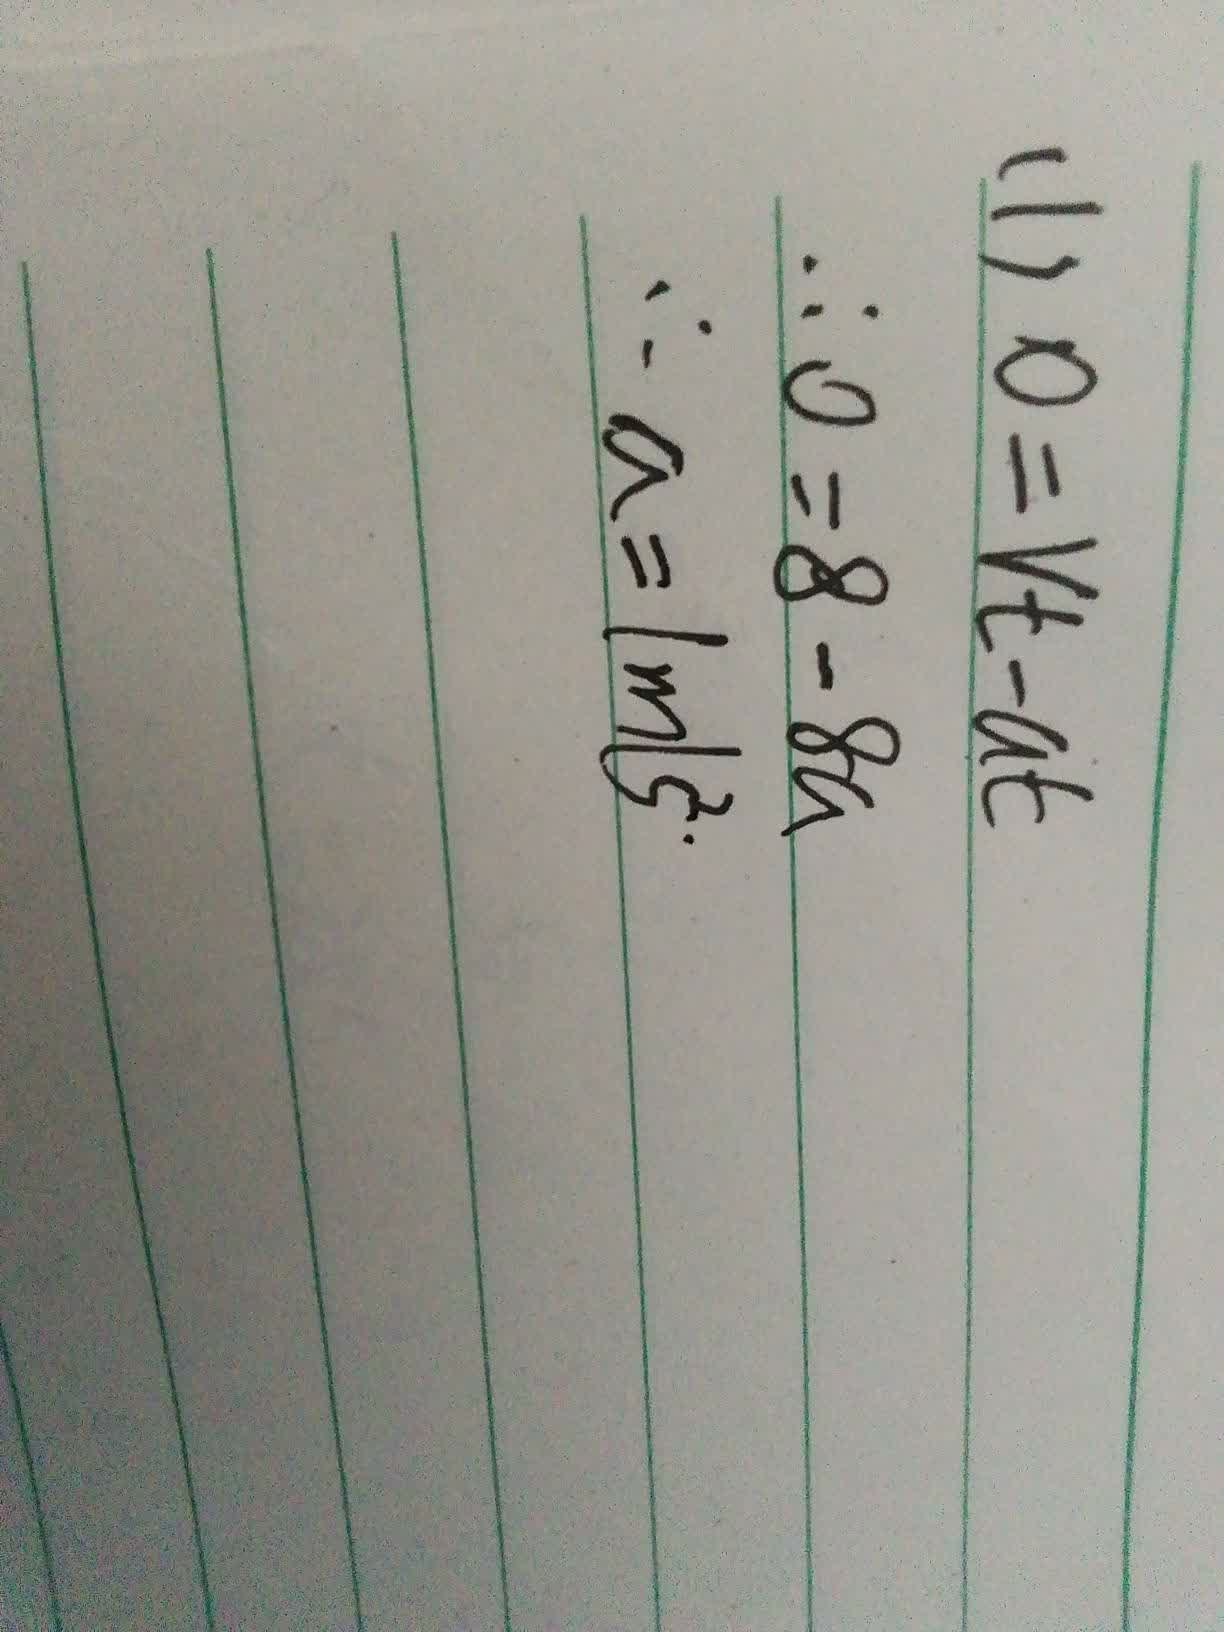 (1) 0 = Vt - at
∴ 0 = 8 - 8a
∴ a = 1m/s².